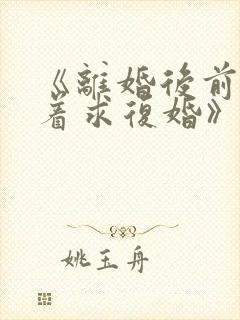 《離婚後前
着求復婚》
姚玉舟